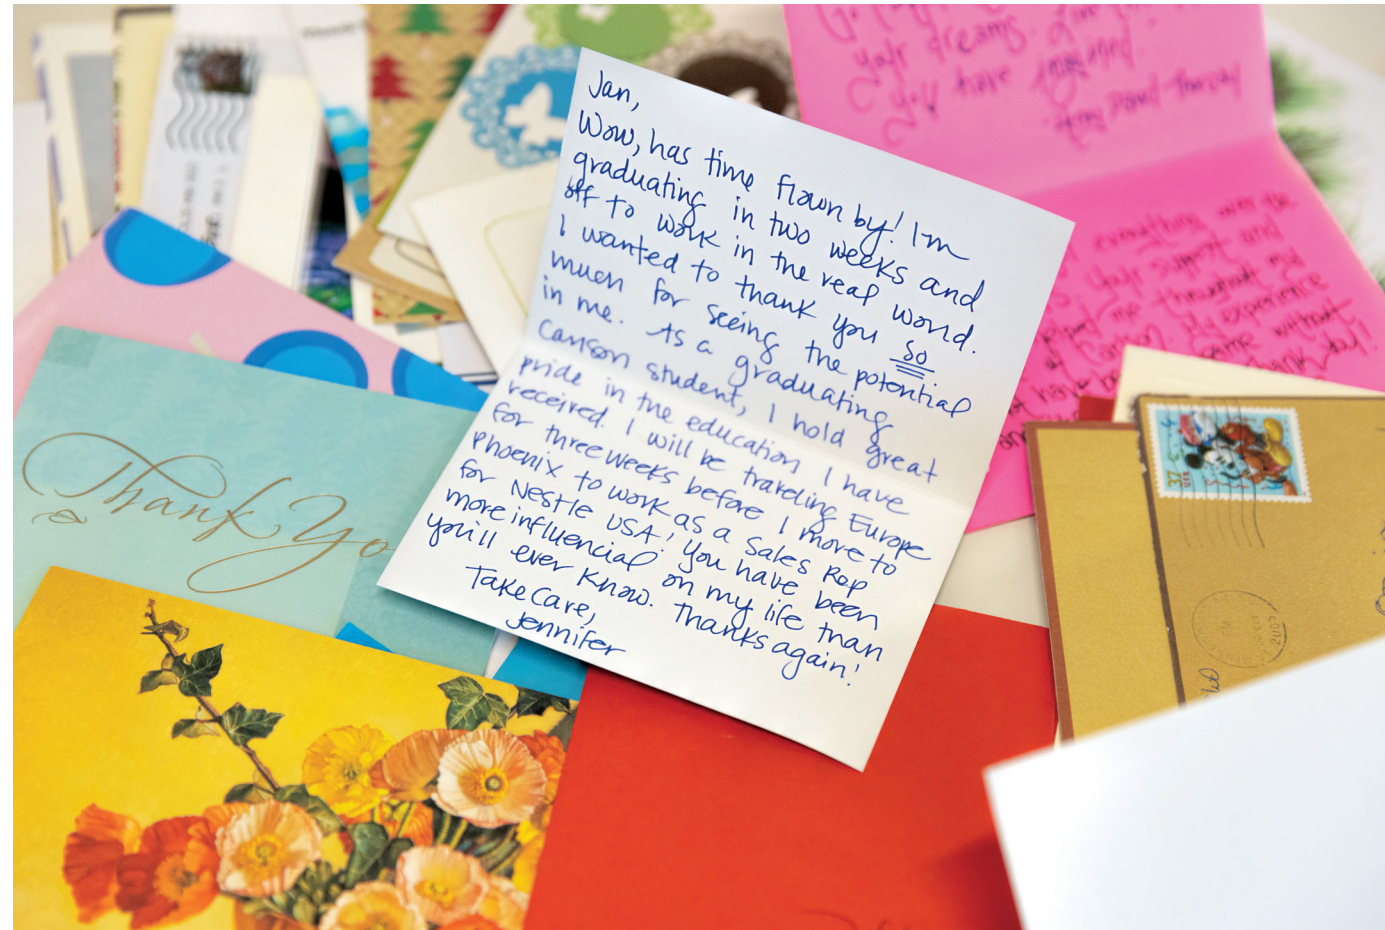 Jan,
Wow, has time flown by! I'm
graduating in two weeks and
off to work in the real world.
I wanted to thank you so
much for seeing the potential
in me. As a graduating
Carson student, I hold great
pride in the education I have
received. I will be traveling Europe
for three weeks before I move to
Phoenix to work as a Sales Rep
for Nestle USA! You have been
more influencial on my life than
you'll ever know. Thanks again!
Take Care,
Jennifer
your dreams.
you have imagined.
everything
your support and
me throughout my
experience
without
Thank you!
Thank Yo
37
USA